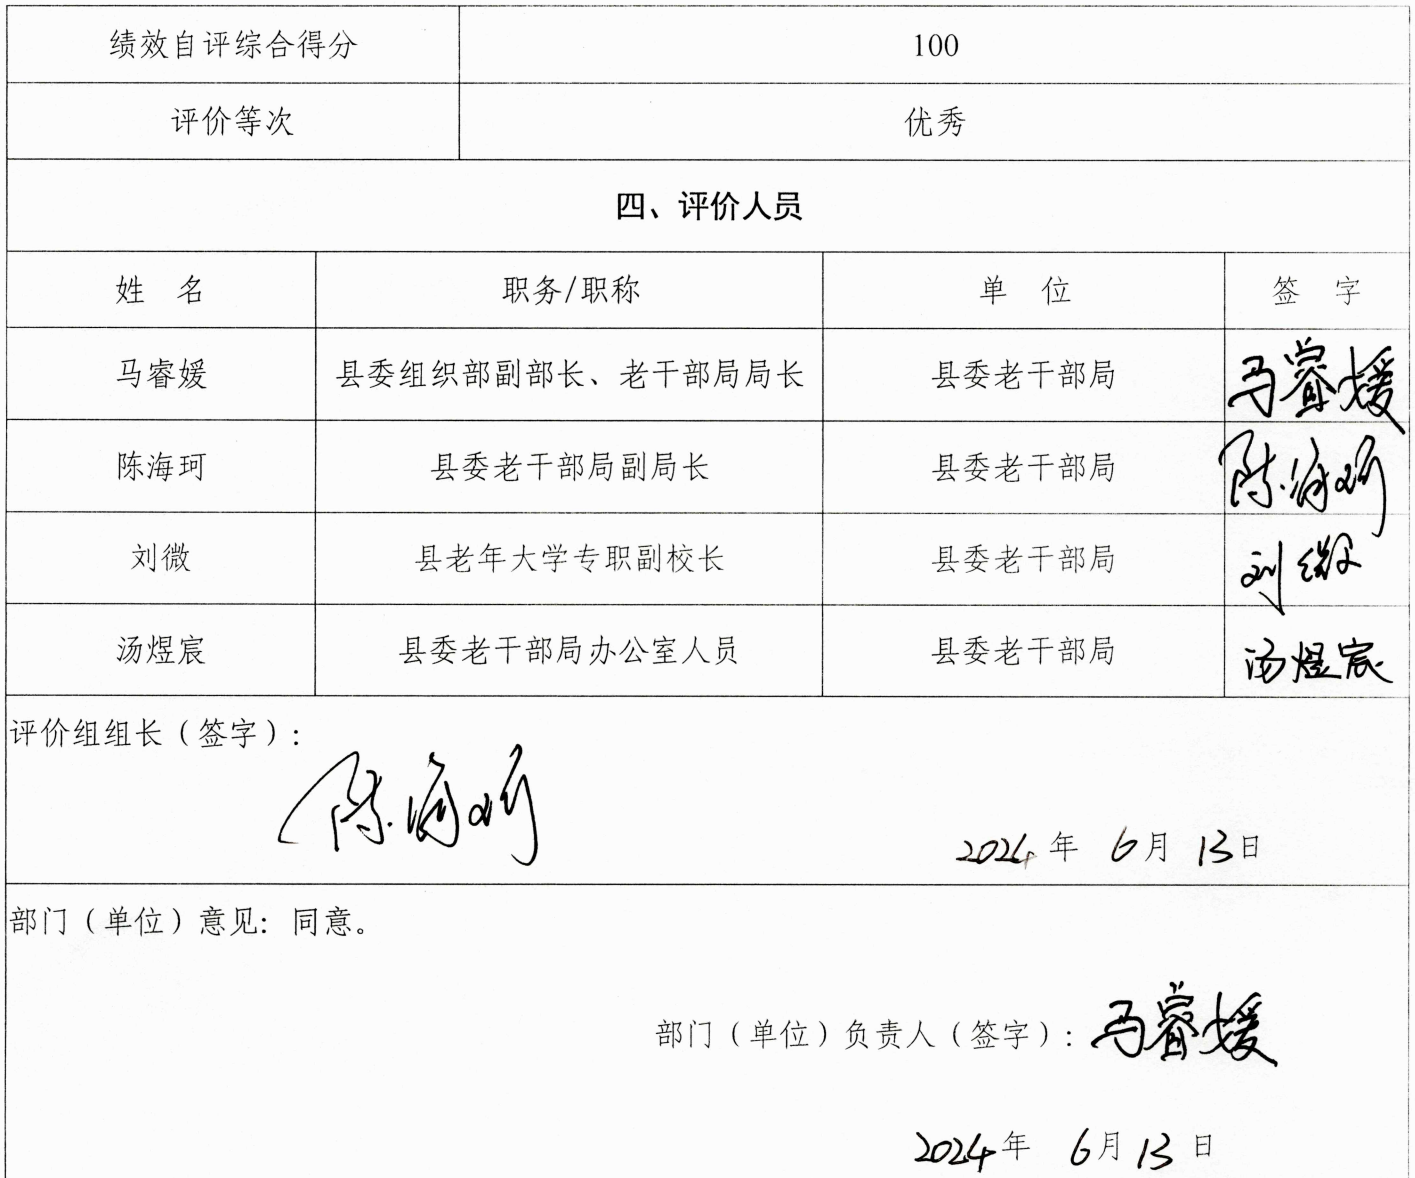 绩效自评综合得分 100
评价等次 优秀
四、评价人员
姓 名 职务/职称 单 位 签 字
马睿媛 县委组织部副部长、老干部局局长 县委老干部局 马睿媛
陈海珂 县委老干部局副局长 县委老干部局 陈海珂
刘微 县老年大学专职副校长 县委老干部局 刘微
汤煜宸 县委老干部局办公室人员 县委老干部局 汤煜宸
评价组组长（签字）：
陈海珂
2024年 6月 13日
部门（单位）意见：同意。
部门（单位）负责人（签字）：马睿媛
2024年 6月13日